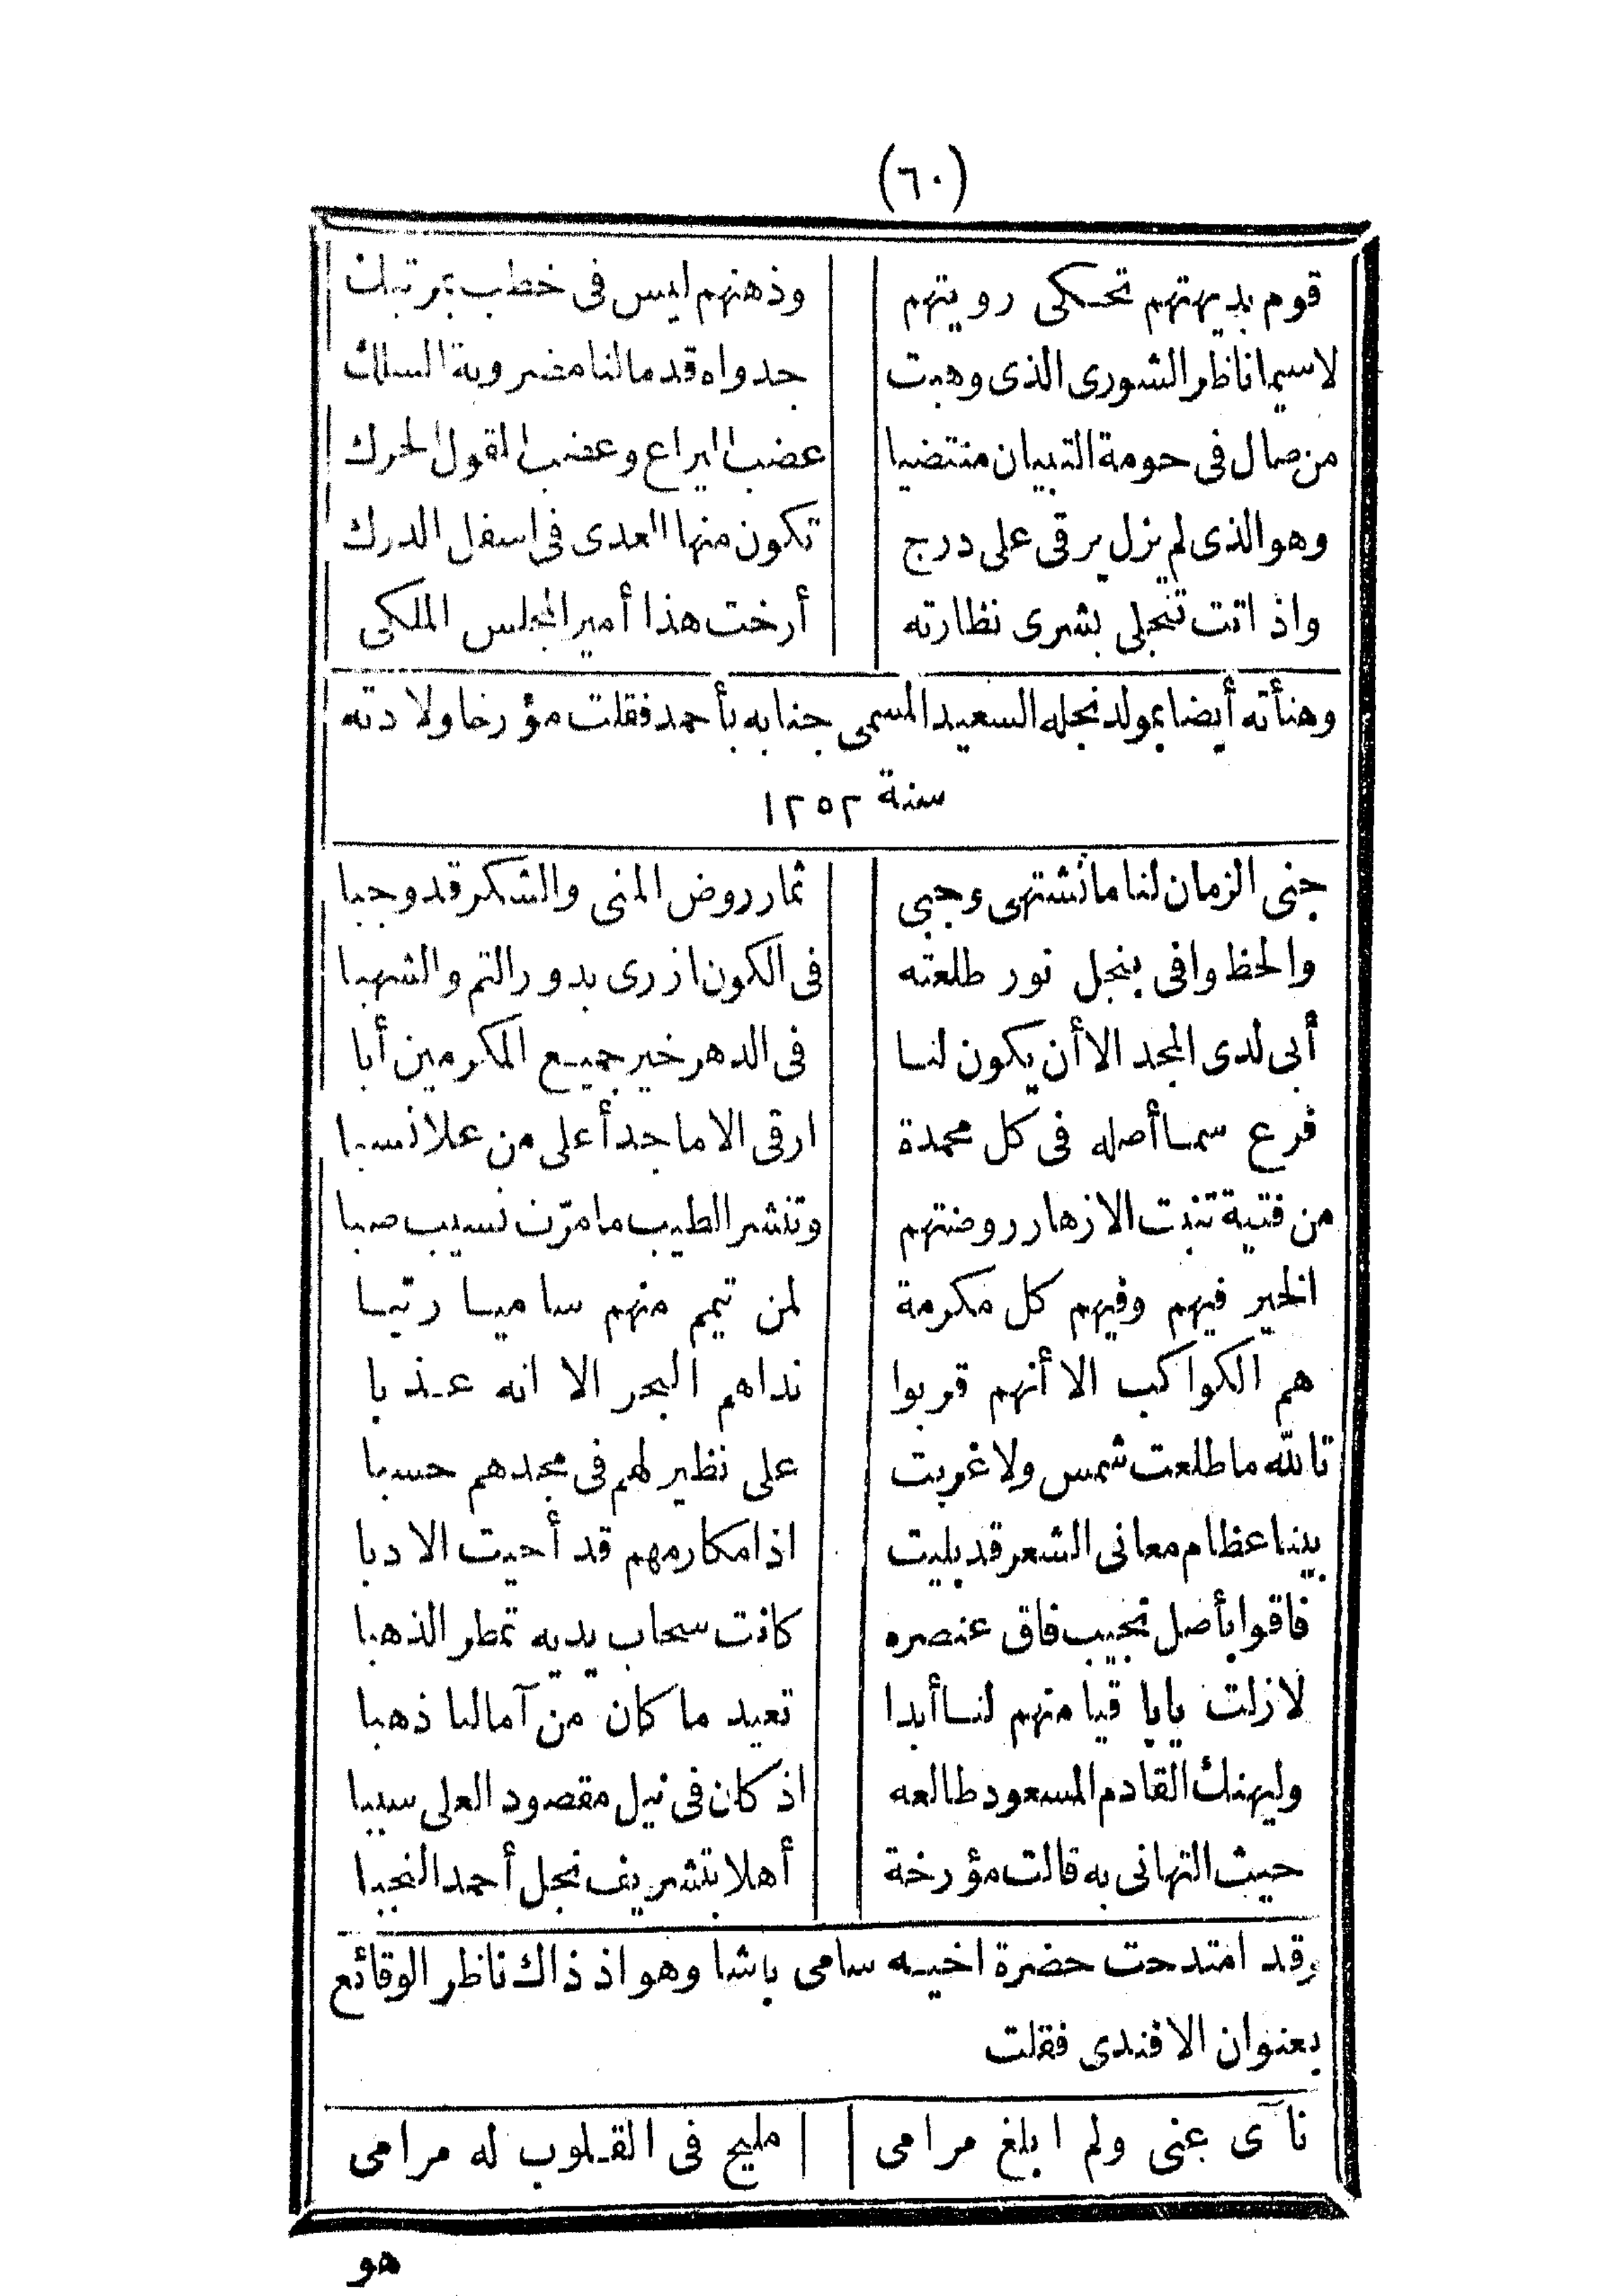 (٦٠)
قوم بديهتهم تحكى رويتهم وذهنهم ليس فى خطب بمرتبك
لاسيما ناظر الشورى الذى وهبت جدواه قدما لنا مضروبة السكك
من صال فى حومة التبيان منتضيا عضب اليراع وعضب القول الحرك
وهو الذى لم يزل يرقى على درج تكون منها العدى فى اسفل الدرك
واذ اتت تنجلى بشرى نظارته أرخت هذا أمير المجلس الملكى
وهنأته أيضا بمولد نجله السعيد المسمى جنابه بأحمد فقلت مؤرخا ولادته
سنة ١٢٥٢
جنى الزمان لنا ما نشتهى وجبى ثمار روض المنى والشكر قد وجبا
والحظ وافى بنجل نور طلعته فى الكون ازرى بدور التم والشهبا
أبى لدى المجد الا أن يكون لنا فى الدهر خير جميع المكرمين أبا
فرع سما أصله فى كل محمدة ارقى الاماجد أعلى من علا نسبا
من فتية تنبت الازهار روضتهم وتنشر الطيب ما مرّت نسيب صبا
الخير فيهم وفيهم كل مكرمة لمن تيمم منهم ساميا رتبا
هم الكواكب الا أنهم قربوا نداهم البحر الا انه عذبا
تالله ما طلعت شمس ولا غربت على نظير لهم فى مجدهم حسبا
بينا عظام معانى الشعر قد بليت اذا مكارمهم قد أحيت الادبا
فاقوا بأصل نجيب فاق عنصره كانت سحاب يديه تمطر الذهبا
لازلت يا باقيا منهم لنا أبدا تعيد ما كان من آمالنا ذهبا
وليهنك القادم المسعود طالعه اذ كان فى نيل مقصود العلى سببا
حيث التهانى به قالت مؤرخة أهلا بتشريف نجل أحمد النجبا
وقد امتدحت حضرة اخيه سامى باشا وهو اذ ذاك ناظر الوقائع
بعنوان الافندى فقلت
نآى عنى ولم ابلغ مرامى مليح فى القلوب له مرامى
هو